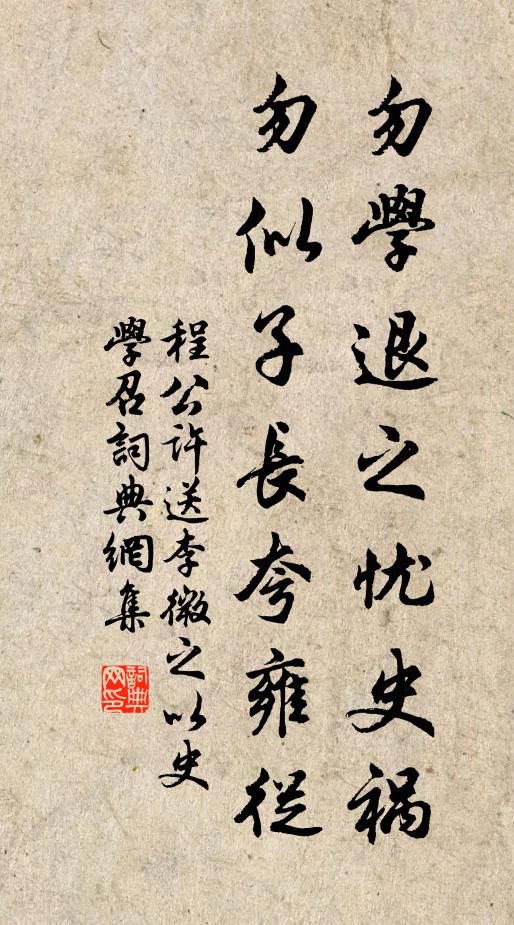 勿學退之忧史祸
勿似子長夸雍從
程公许送李微之以史
學召詞典網集
詞典
网印